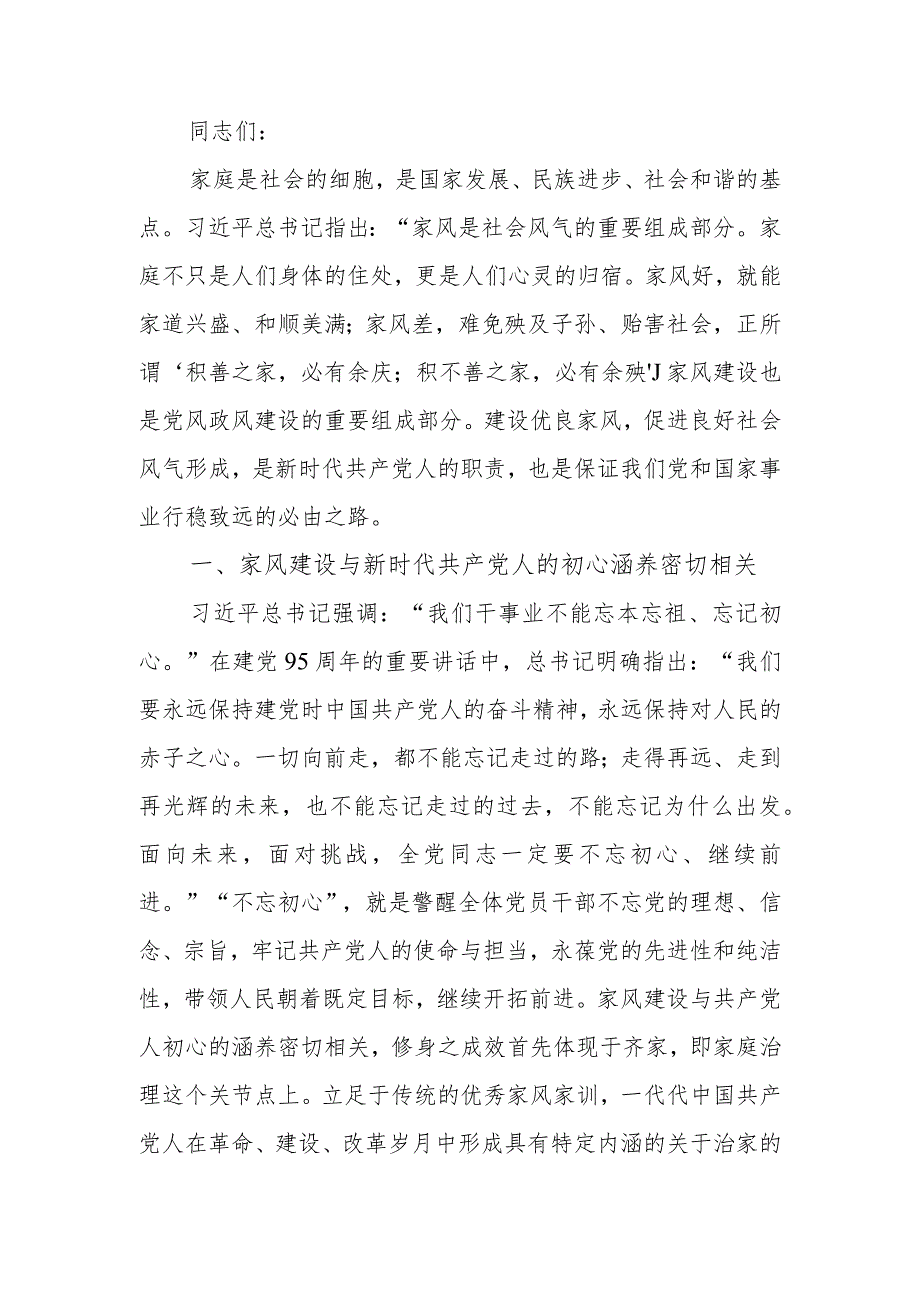 同志们：
家庭是社会的细胞，是国家发展、民族进步、社会和谐的基
点。习近平总书记指出：“家风是社会风气的重要组成部分。家
庭不只是人们身体的住处，更是人们心灵的归宿。家风好，就能
家道兴盛、和顺美满；家风差，难免殃及子孙、贻害社会，正所
谓‘积善之家，必有余庆；积不善之家，必有余殃'J家风建设也
是党风政风建设的重要组成部分。建设优良家风，促进良好社会
风气形成，是新时代共产党人的职责，也是保证我们党和国家事
业行稳致远的必由之路。
一、家风建设与新时代共产党人的初心涵养密切相关
习近平总书记强调：“我们干事业不能忘本忘祖、忘记初
心。”在建党95周年的重要讲话中，总书记明确指出：“我们
要永远保持建党时中国共产党人的奋斗精神，永远保持对人民的
赤子之心。一切向前走，都不能忘记走过的路；走得再远、走到
再光辉的未来，也不能忘记走过的过去，不能忘记为什么出发。
面向未来，面对挑战，全党同志一定要不忘初心、继续前
进。”“不忘初心”，就是警醒全体党员干部不忘党的理想、信
念、宗旨，牢记共产党人的使命与担当，永葆党的先进性和纯洁
性，带领人民朝着既定目标，继续开拓前进。家风建设与共产党
人初心的涵养密切相关，修身之成效首先体现于齐家，即家庭治
理这个关节点上。立足于传统的优秀家风家训，一代代中国共产
党人在革命、建设、改革岁月中形成具有特定内涵的关于治家的